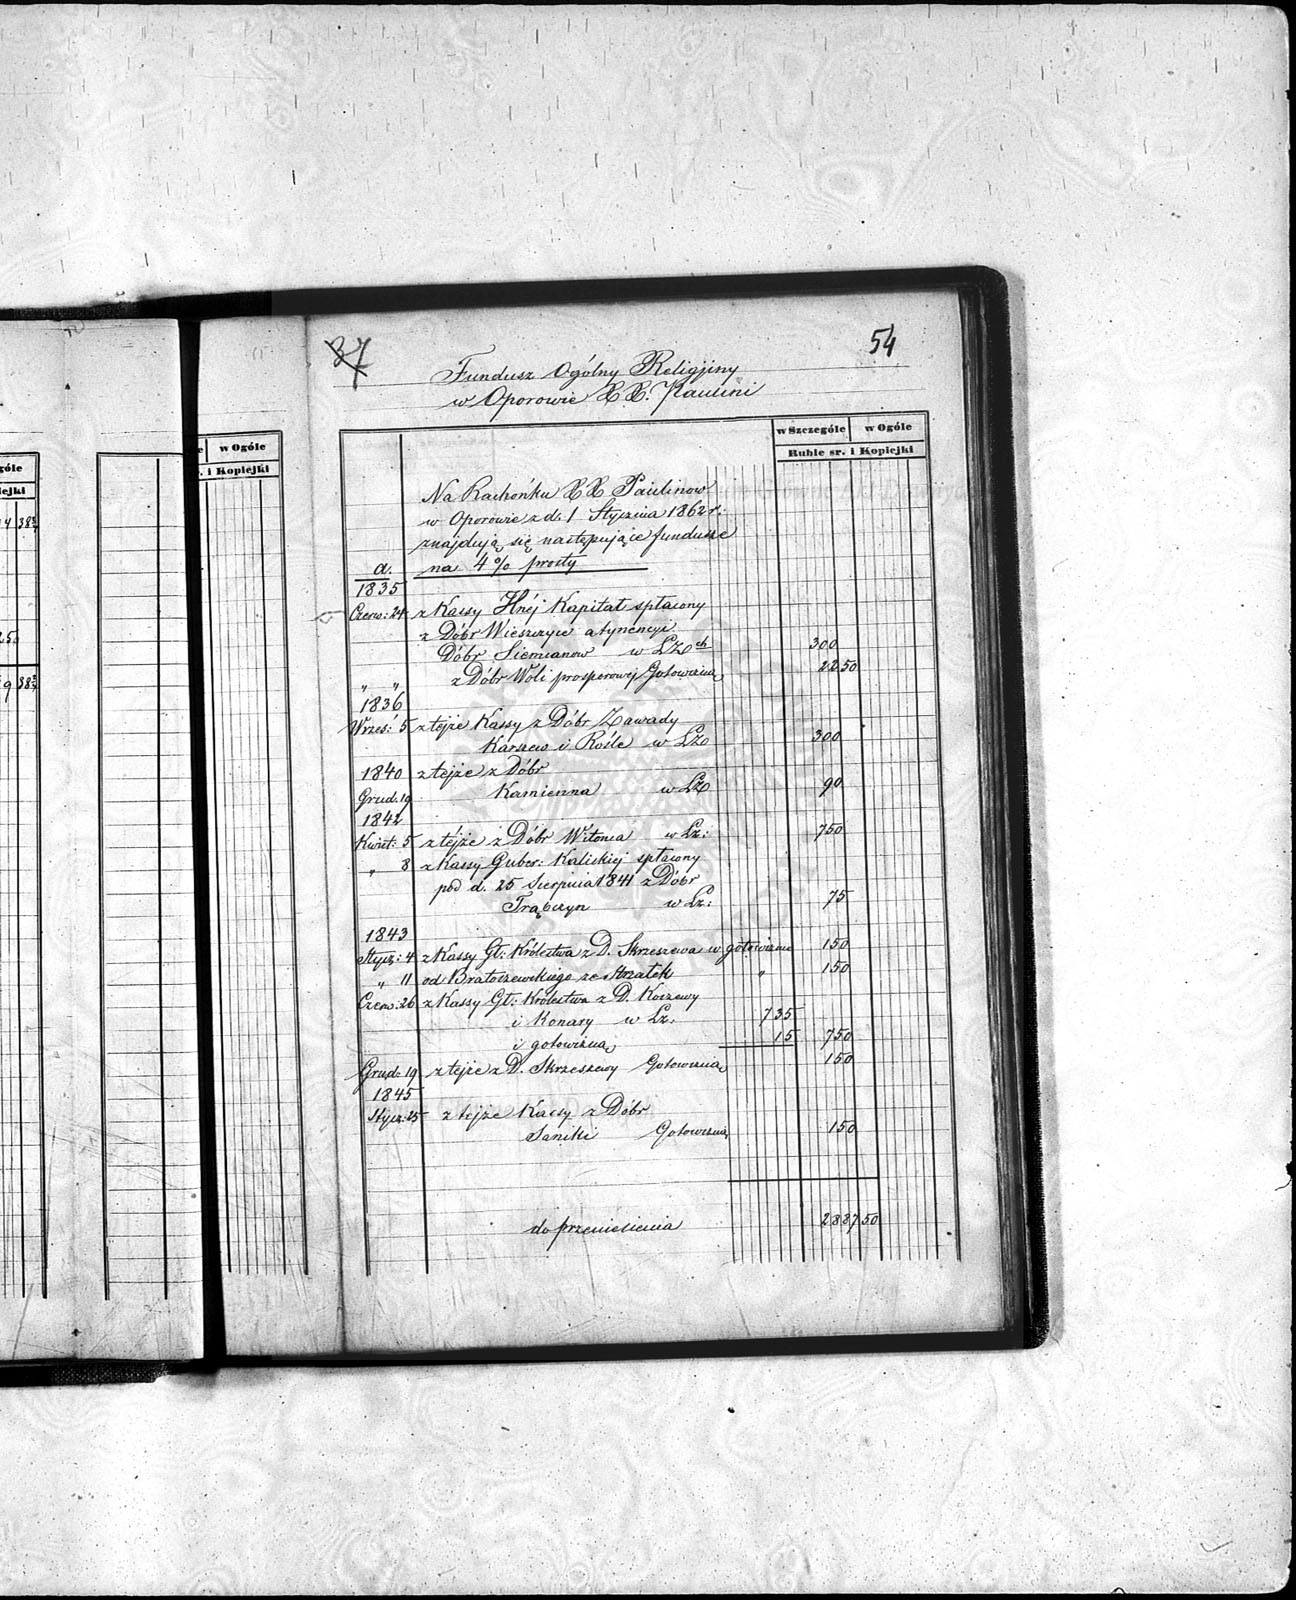 37
54
Fundusz Ogólny Religijny
w Oporowie XX. Paulini
w Szczególe w Ogóle
Ruble sr. i Kopiejki
Na Rachunku XX Paulinow
w Oporowie z d. 1 Stycznia 1862 r.
znajdują się następujące fundusze
a. na 4% prosty
1835
Czerw: 24 z Kassy Hnéj Kapitał spłacony
z Dóbr Wieszczyce atynencyi
Dóbr Siemianow w LZ ch 300
" " z Dóbr Woli prosperowej Gotowizną 22 50
1836
Wrześ: 5 z tejże Kassy z Dóbr Zawady
Karszew i Rośle w LZ 300
1840 z tejże z Dóbr
Grud. 19 Kamienna w LZ 90
1842
Kwiet: 5 z téjże z Dóbr Witonia w Lz: 750
" 8 z Kassy Guber: Kaliskiej spłacony
pod d. 25 Sierpnia 1841 z Dóbr
Trąbczyn w Lz: 75
1843
Stycz: 4 z Kassy Gł: Królestwa z D. Skrzeszewa w gotowiznie 150
" 11 od Bratoszewskiego ze " 150
Czerw: 26 z Kassy Gł: Królestwa z D. Koszewy
i Konary w Lz: 735
i gotowizną 15 750
Grud: 19 z tejże z D. Skrzeszewy Gotowizną 150
1845
Stycz: 25 z tejże Kassy z Dóbr
Saniki Gotowizną 150
do przeniesienia 2887 50
w Ogóle
i Kopiejki